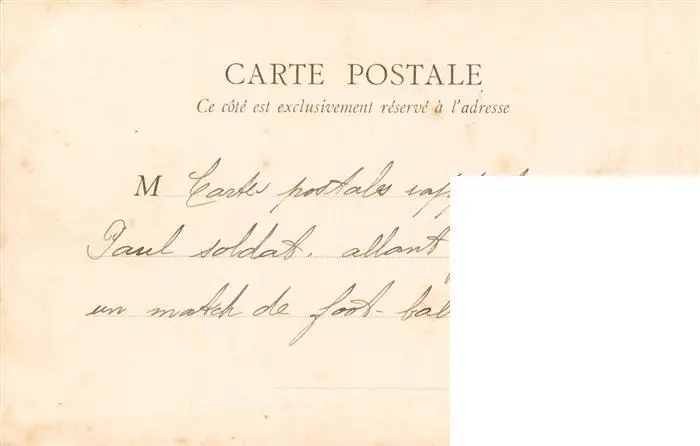 CARTE POSTALE
Ce côté est exclusivement réservé à l'adresse
M Cartes postales
Paul soldat. allant
un match de foot-bal